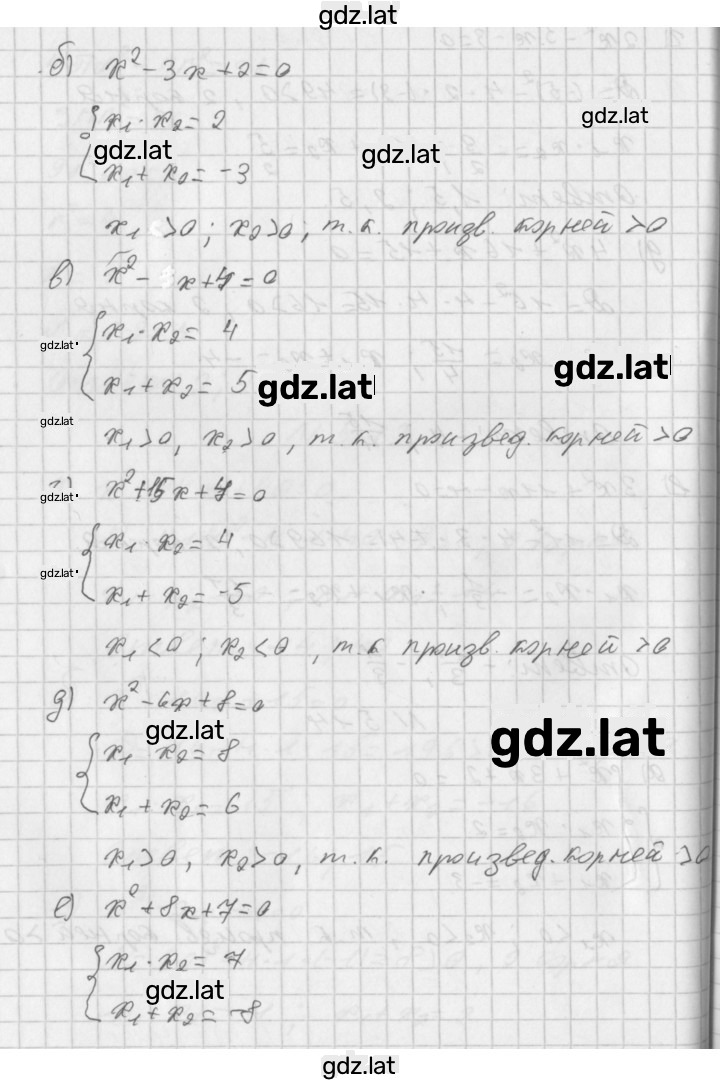 gdz.lat
б) x² - 3x + 2 = 0
x₁ · x₂ = 2
gdz.lat
gdz.lat gdz.lat
x₁ + x₂ = -3
x₁ > 0 ; x₂ > 0 ; т.к. произв. корней > 0
в) x² - x + 4 = 0
x₁ · x₂ = 4
gdz.lat
gdz.lat
x₁ + x₂ = 5
gdz.lat
gdz.lat
x₁ > 0, x₂ > 0, т.к. произвед. корней > 0
x² + 5x + 4 = 0
gdz.lat
x₁ · x₂ = 4
gdz.lat
x₁ + x₂ = -5
x₁ < 0 ; x₂ < 0 , т.к произв. корней > 0
д) x² - 6x + 8 = 0
gdz.lat
gdz.lat
x₁ x₂ = 8
x₁ + x₂ = 6
x₁ > 0, x₂ > 0, т.к. произвед. корней > 0
е) x² + 8x + 7 = 0
x₁ · x₂ = 7
gdz.lat
x₁ + x₂ = -8
gdz.lat